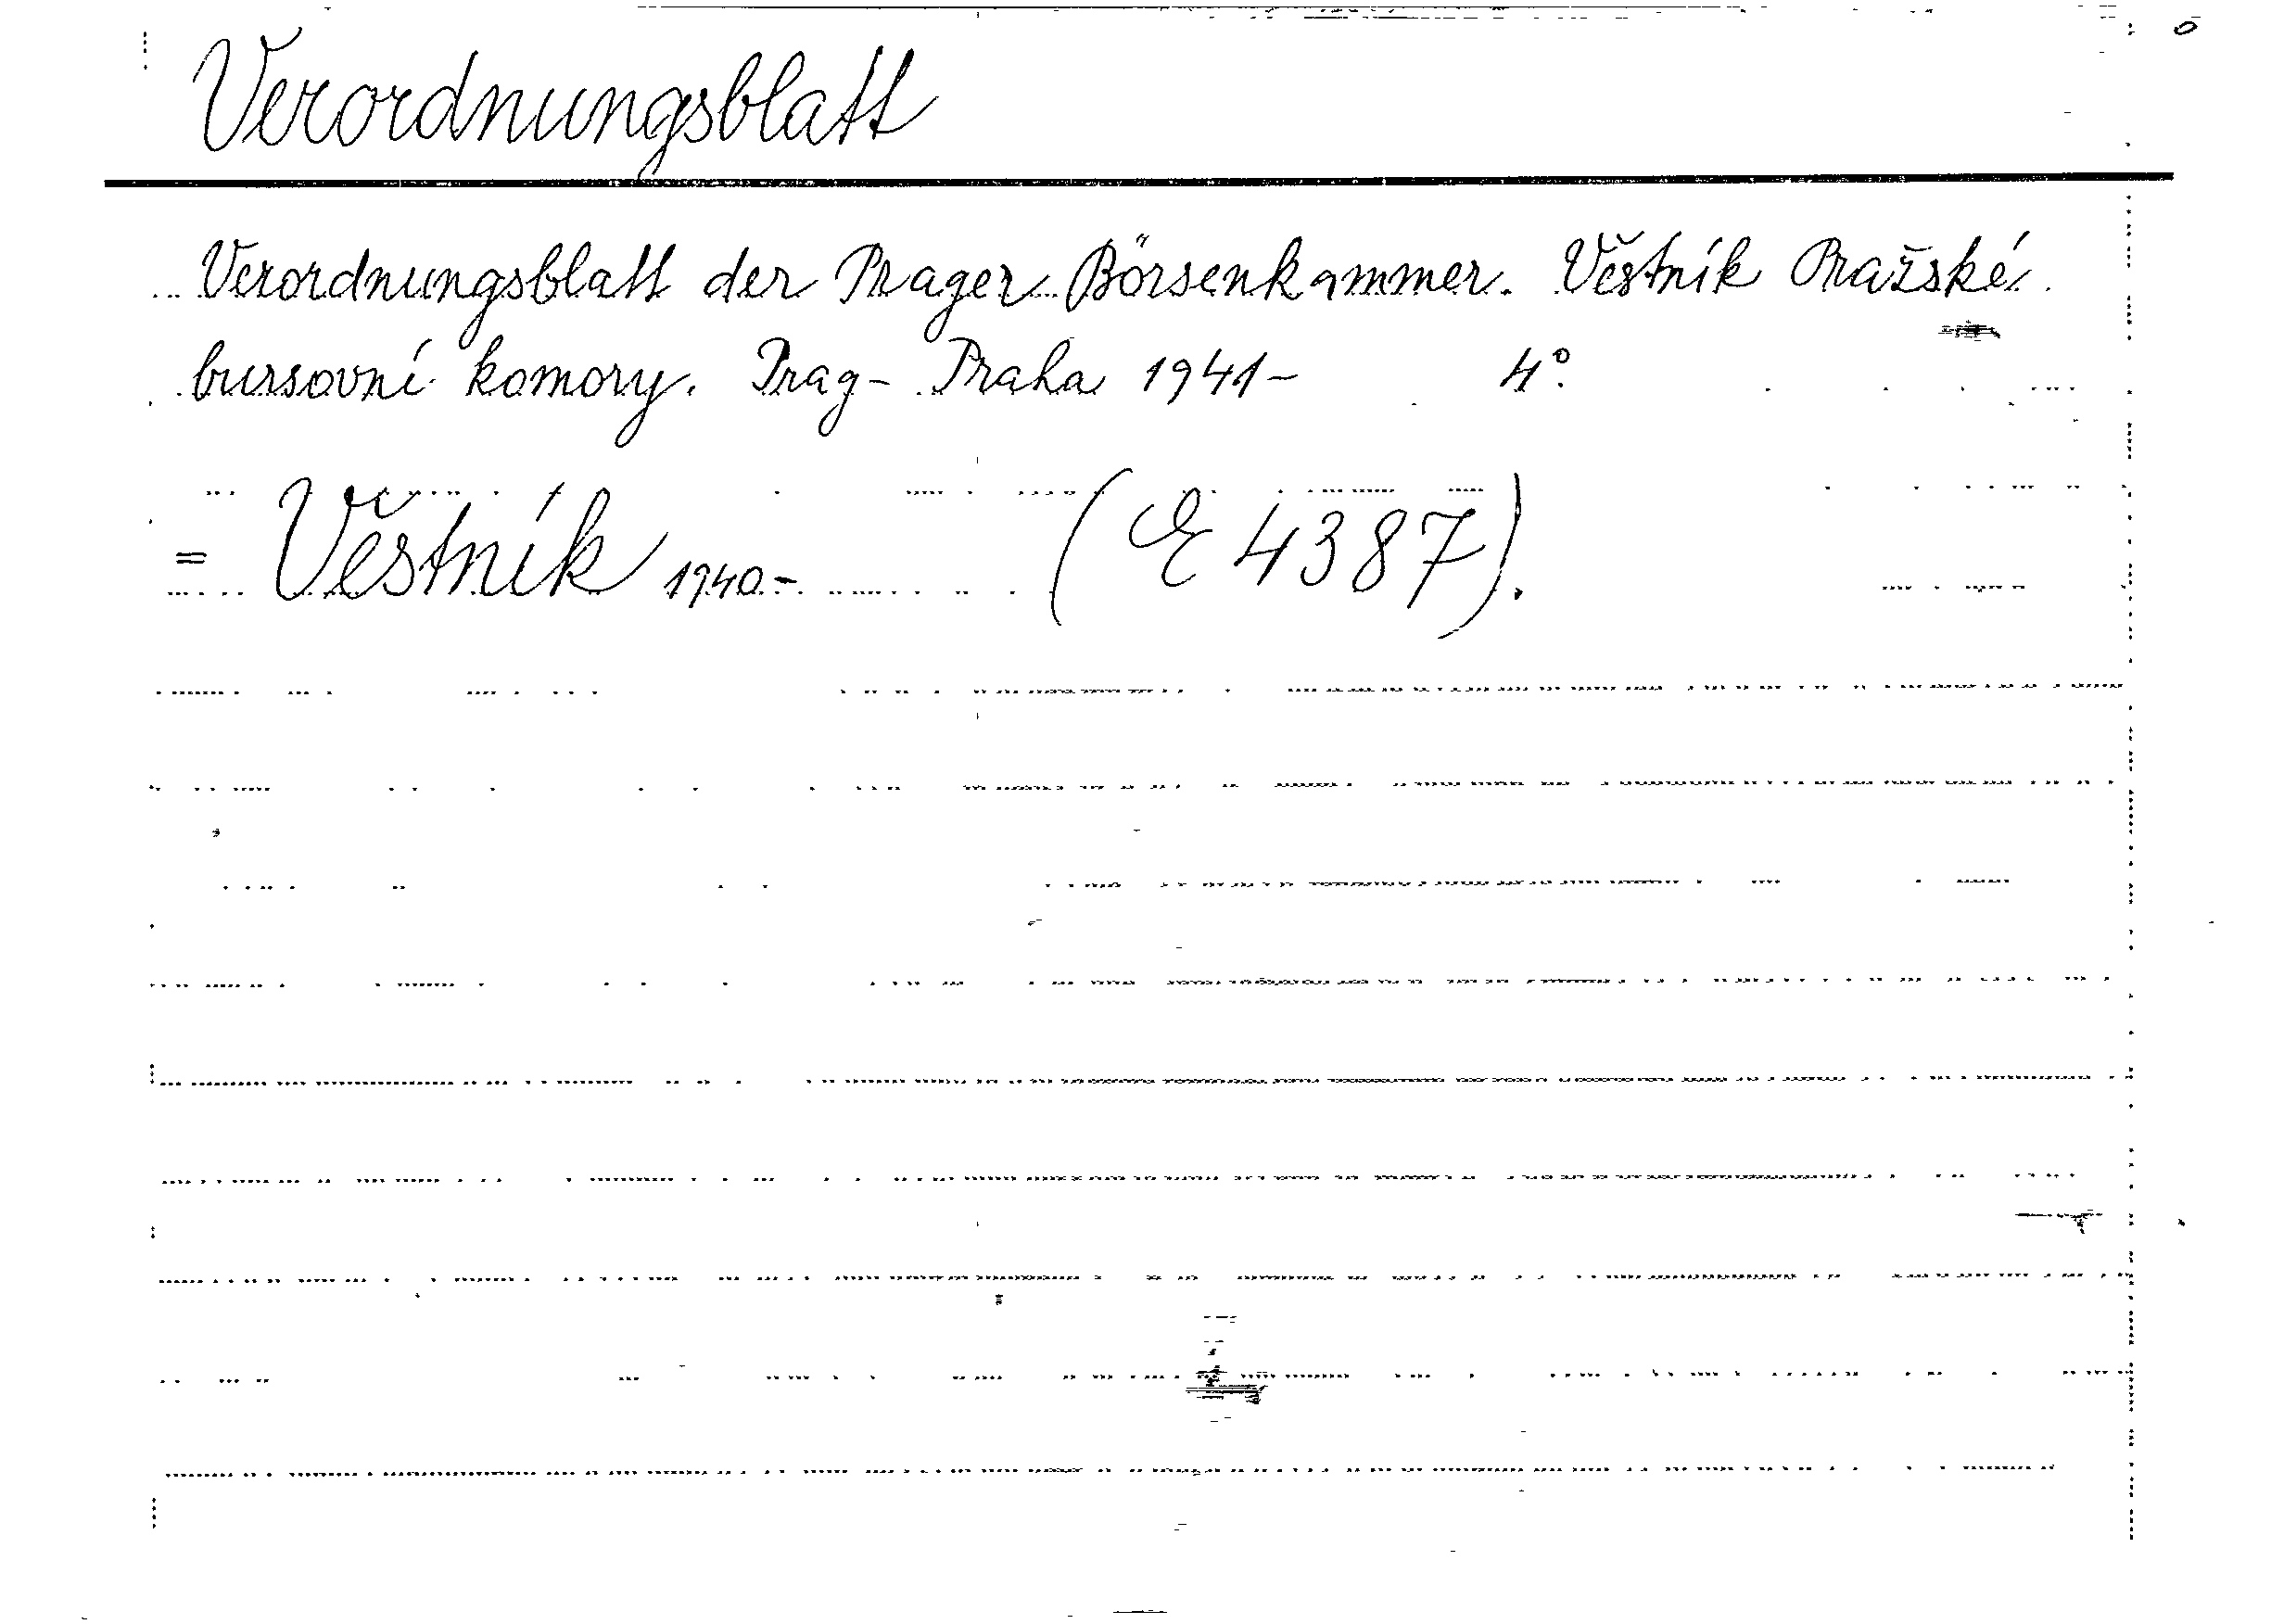 Verordnungsblatt
Verordnungsblatt der Prager Börsenkammer. Věstník Pražské
bursovní komory. Prag - Praha 1941- 4°.
= Věstník 1940.- (E 4387).